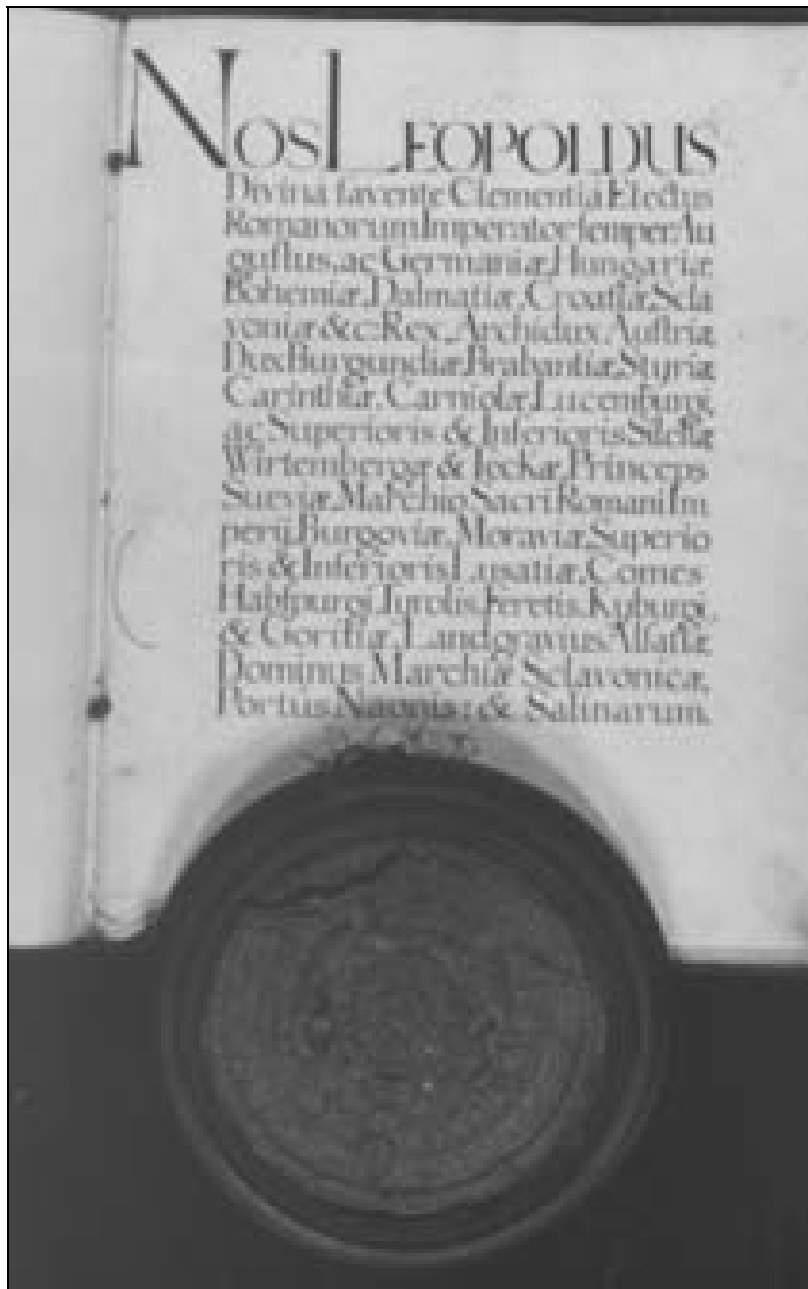 NOS LEOPOLDUS
Divinâ favente Clementiâ Electus
Romanorum Imperator semper Au
gustus, ac Germaniæ, Hungariæ,
Bohemiæ, Dalmatiæ, Croatiæ, Scla
voniæ &c: Rex, Archidux Austriæ,
Dux Burgundiæ, Brabantiæ, Styriæ,
Carinthiæ, Carniolæ, Lucemburgi,
ac Superioris & Inferioris Silesiæ,
Wirtembergæ & Teckæ, Princeps
Sueviæ, Marchio Sacri Romani Im
perij, Burgoviæ, Moraviæ, Superio
ris & Inferioris Lusatiæ, Comes
Habspurgi, Tyrolis, Feretis, Kyburgi,
& Goritiæ, Landgravius Alsatiæ,
Dominus Marchiæ Sclavonicæ,
Portûs Naonis: & Salinarum.